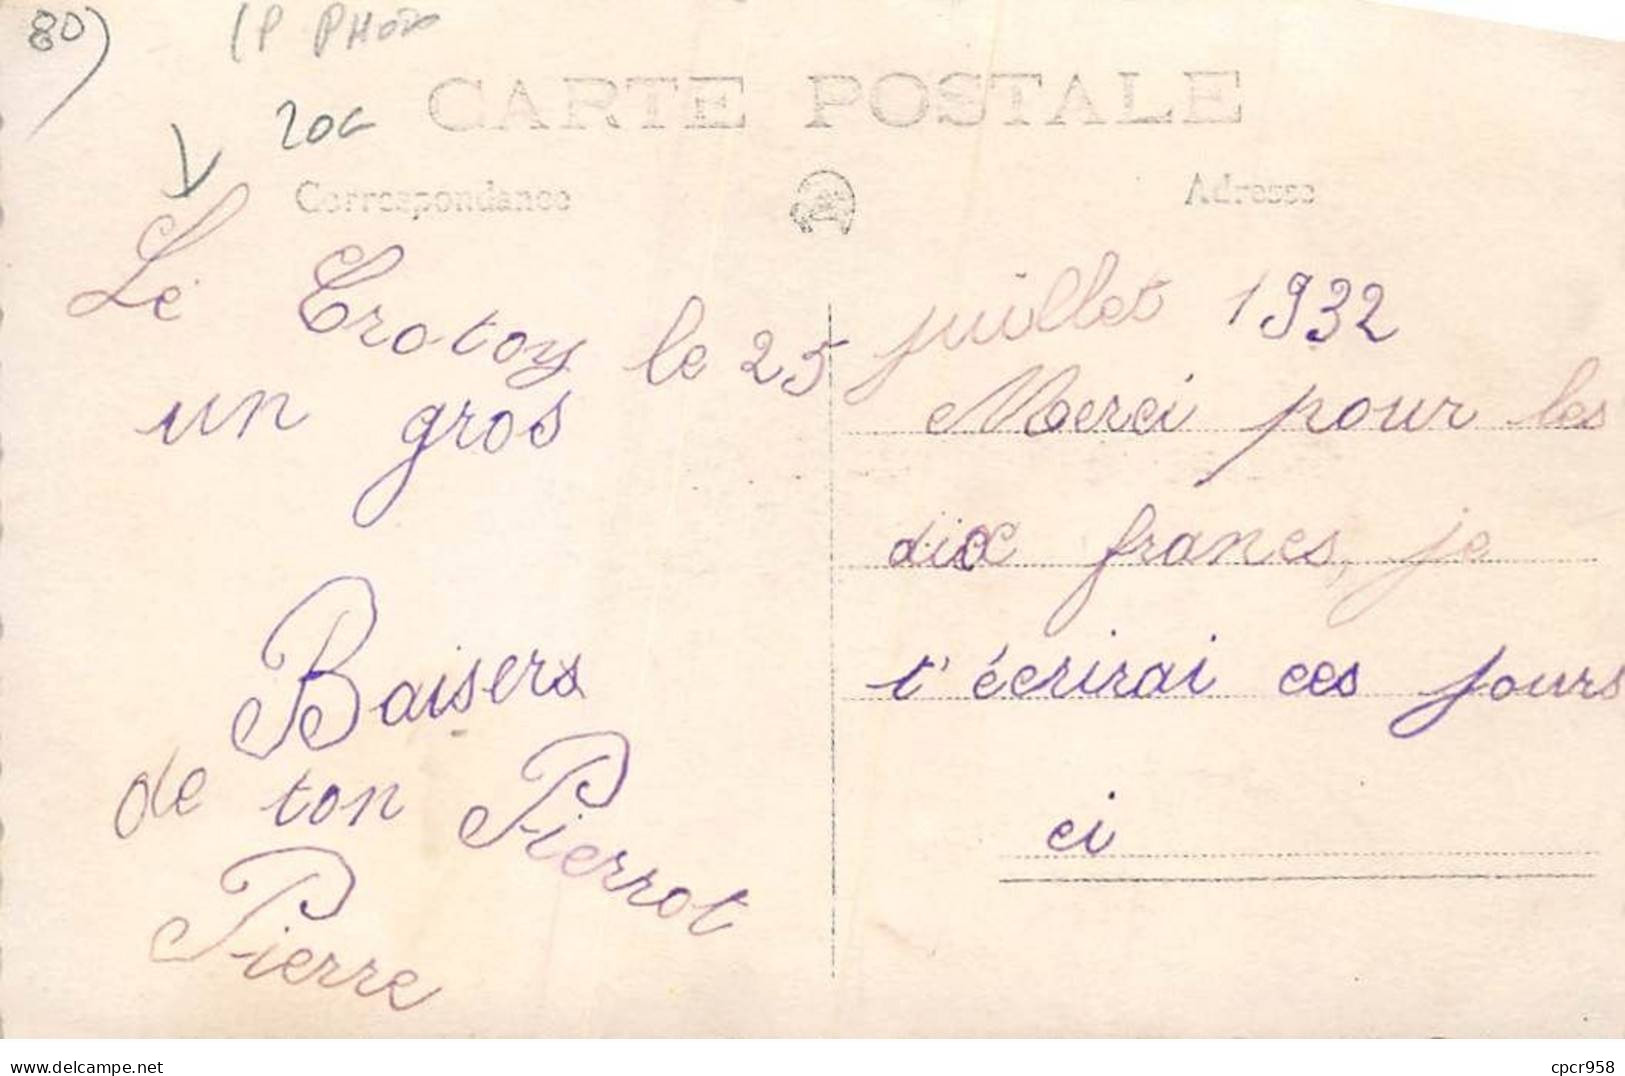 80) CP PHOTO
20c
CARTE POSTALE
Correspondance
Adresse
Le Crotoy le 25 juillet 1932
un gros
Baisers
de ton Pierrot
Pierre
Merci pour les
dix francs, je
t'écrirai ces jours
ci
www.delcampe.net
cpcr958